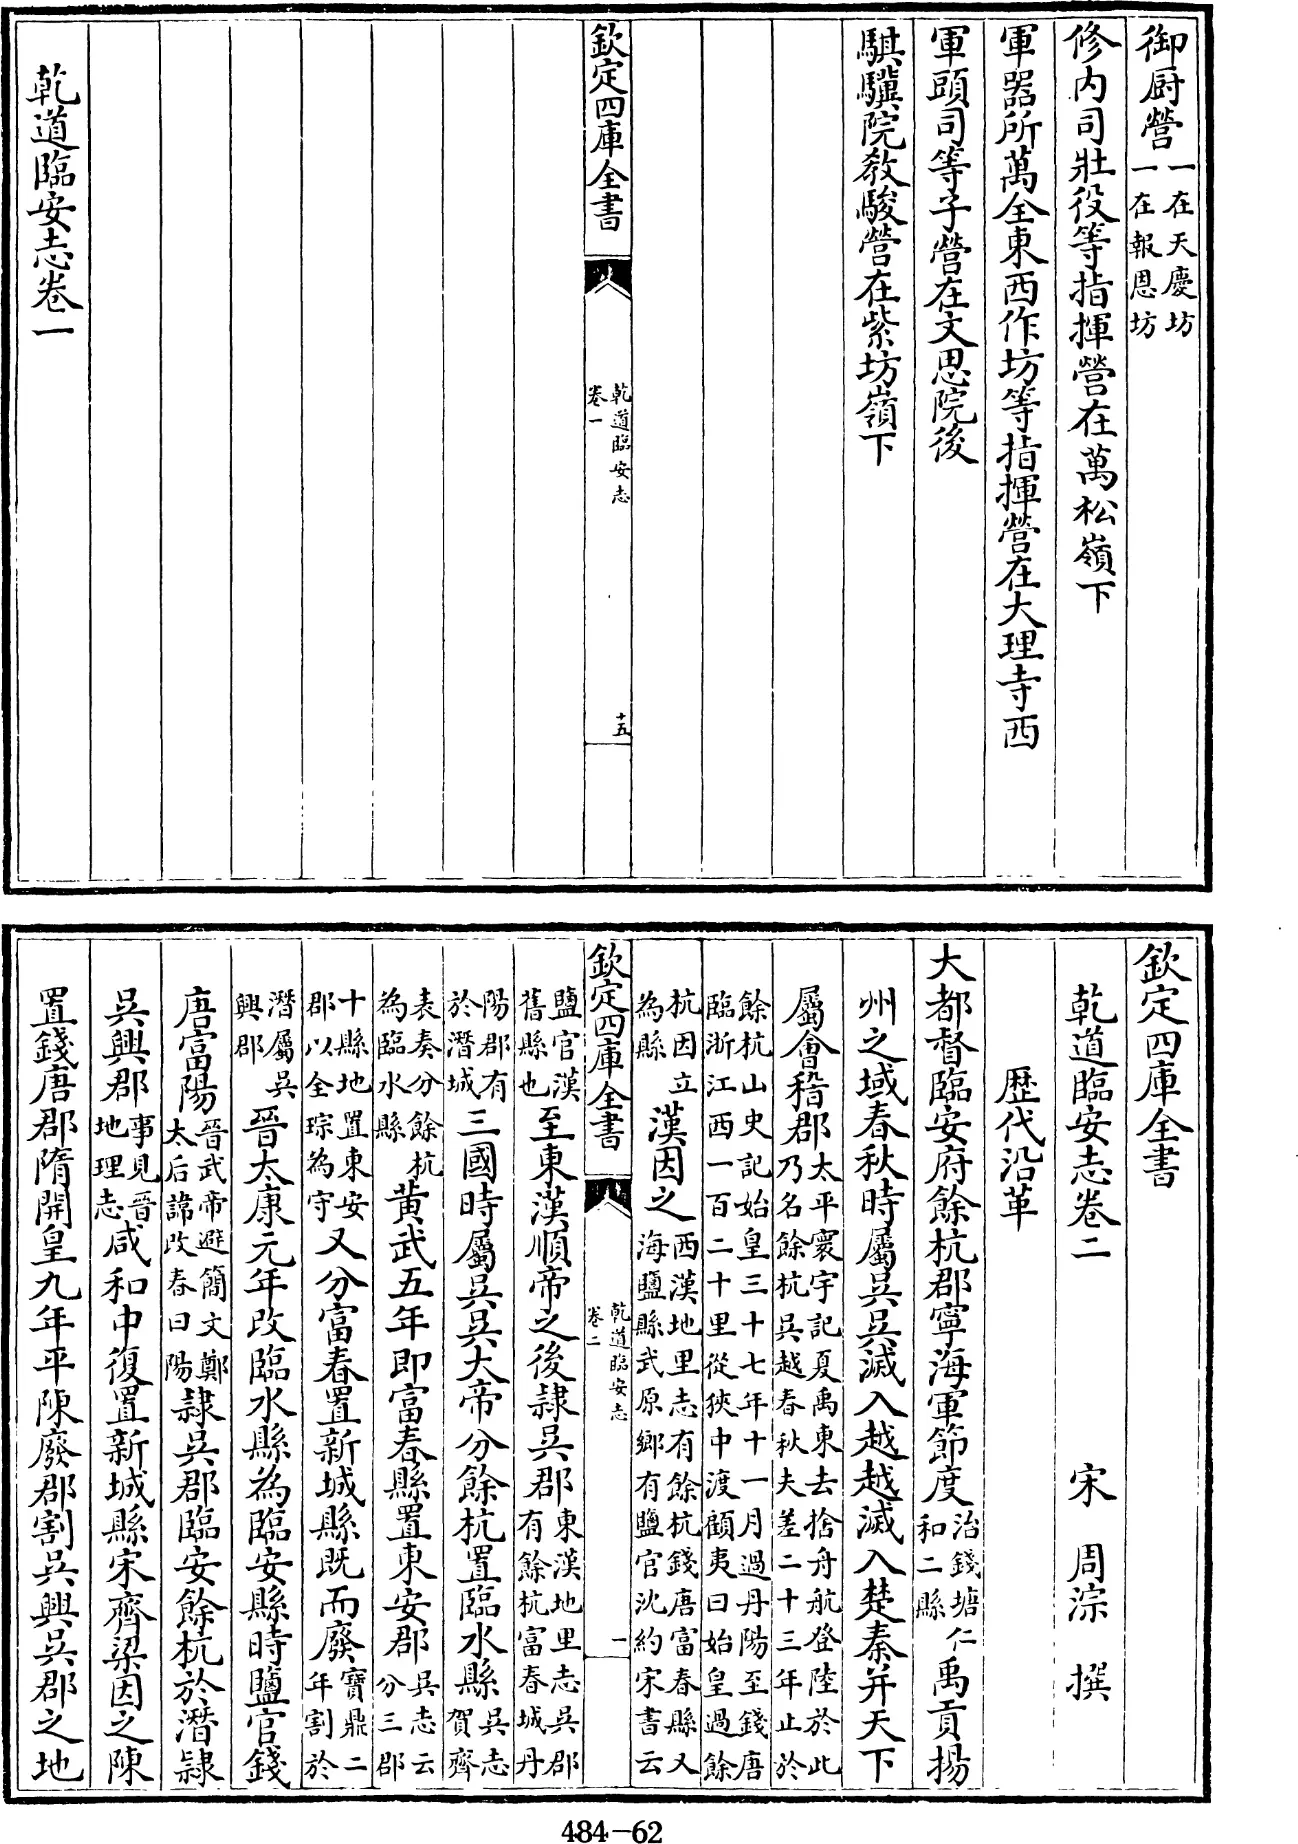 御厨營一在天慶坊一在報恩坊
修内司壯役等指揮營在萬松嶺下
軍器所萬全東西作坊等指揮營在大理寺西
軍頭司等子營在文思院後
騏驥院教駿營在紫坊嶺下
欽定四庫全書
乾道臨安志
卷一
十五
乾道臨安志卷一
欽定四庫全書
乾道臨安志卷二
宋 周淙 撰
歷代沿革
大都督臨安府餘杭郡寧海軍節度治錢塘仁和二縣禹貢揚
州之域春秋時屬吳吳滅入越越滅入楚秦并天下
屬會稽郡太平寰宇記夏禹東去捨舟航登陸於此乃名餘杭吳越春秋夫差二十三年止於
餘杭山史記始皇三十七年十一月過丹陽至錢唐臨浙江西一百二十里從狹中渡顧夷曰始皇過餘
杭因立為縣漢因之西漢地里志有餘杭錢唐富春縣又海鹽縣武原鄉有鹽官沈約宋書云
欽定四庫全書
乾道臨安志
卷二
一
鹽官漢舊縣也至東漢順帝之後隸吳郡東漢地里志吳郡有餘杭富春城丹
陽郡有於潛城三國時屬吳吳大帝分餘杭置臨水縣吳志賀齊
表奏分餘杭為臨水縣黃武五年即富春縣置東安郡吳志云分三郡
十縣地置東安郡以全琮為守又分富春置新城縣既而廢寶鼎二年割於
潛屬吳興郡晉太康元年改臨水縣為臨安縣時鹽官錢
唐富陽晉武帝避簡文鄭太后諱改春曰陽隸吳郡臨安餘杭於潛隸
吳興郡事見晉地理志咸和中復置新城縣宋齊梁因之陳
置錢唐郡隋開皇九年平陳廢郡割吳興吳郡之地
484-62